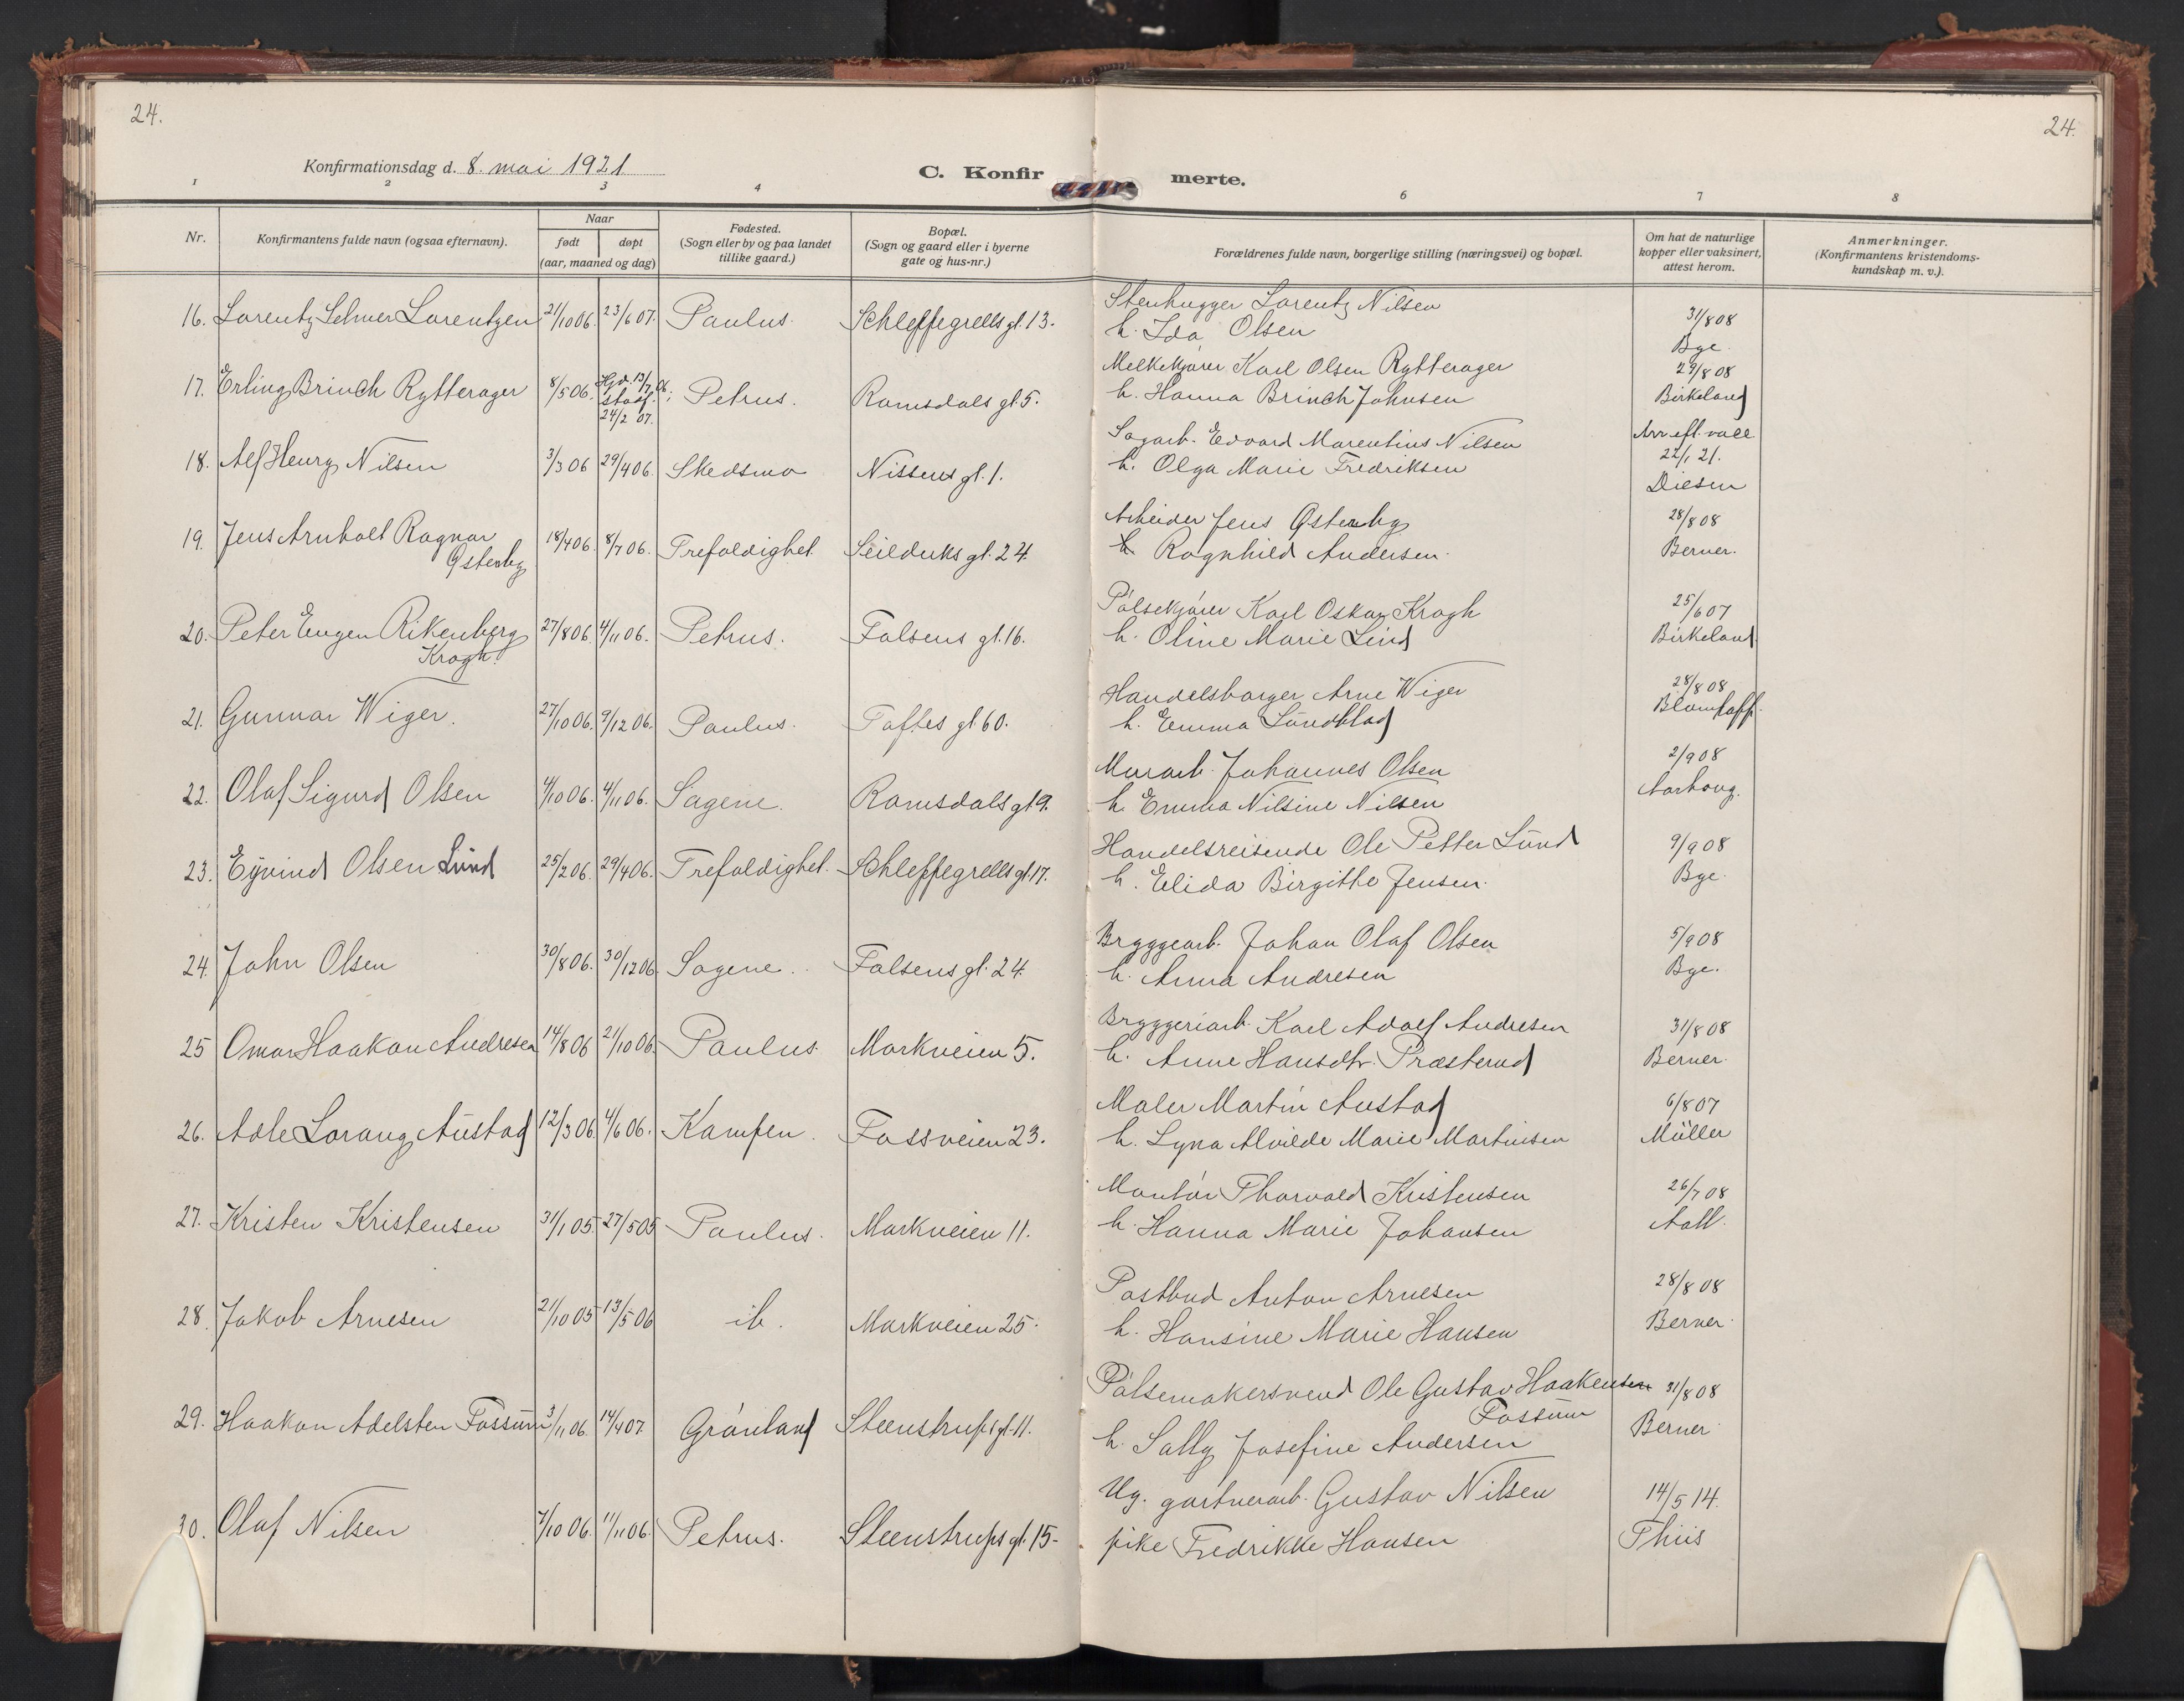 24.
24.
Konfirmationsdag d. 8. mai 1921
C. Konfir merte.
1 2 3 4 6 7 8
Nr.
Konfirmantens fulde navn (ogsaa efternavn).
Naar
født døpt
(aar, maaned og dag)
Fødested.
(Sogn eller by og paa landet
tillike gaard.)
Bopæl.
(Sogn og gaard eller i byerne
gate og hus-nr.)
Forældrenes fulde navn, borgerlige stilling (næringsvei) og bopæl.
Om hat de naturlige
kopper eller vaksinert,
attest herom.
Anmerkninger.
(Konfirmantens kristendoms-
kundskap m. v.).
16. Lorentz Selmer Lorentzen 21/10 06. 23/6 07. Paulus. Schleppegrells gt. 13.
Stenhugger Lorentz Nilsen
h. Ida Olsen
31/8 08
Bye
17. Erling Brinch Rytterager 8/5 06. Hjd. 13/7 06; stadf. 24/2 07. Petrus. Romsdals gt. 5.
Melkekjører Karl Olsen Rytterager
h. Hanna Brinch Johnsen
29/8 08
Birkeland
18. Alf Henry Nilsen 3/3 06 29/4 06. Skedsmo Nissens gt. 1.
Sagarb. Edvard Marentius Nilsen
h. Olga Marie Fredriksen
Arr eft. vacc.
22/1 21.
Diesen
19. Jens Arnholt Ragnar
Østerby
18/4 06. 8/7 06. Trefoldighet. Seilduks gt. 24.
Arbeider Jens Østerby
h. Ragnhild Andersen.
28/8 08
Berner.
20. Peter Eugen Rikenberg
Krogh.
27/8 06. 4/11 06. Petrus. Falsens gt. 16.
Pølsekjører Karl Oskar Krogh
h. Oline Marie Lind
25/6 07
Birkeland
21. Gunnar Wiger. 27/10 06. 9/12 06. Paulus. Toftes gt 60.
Handelsborger Arne Wiger
h. Emma Lundblad
28/8 08
22. Olaf Sigurd Olsen 4/10 06. 4/11 06. Sagene. Romsdals gt 9.
Murarb. Johannes Olsen
h. Emma Nilsine Nilsen
2/9 08
23. Eyvind Olsen Lund 25/2 06. 29/4 06. Trefoldighet. Schleppegrells gt 17.
Handelsreisende Ole Petter Lund
h. Elida Birgithe Jensen.
9/9 08
Bye.
24. John Olsen 30/8 06. 30/12 06. Sagene. Falsens gt. 24
Bryggearb. Johan Olaf Olsen
h. Anna Andresen
5/9 08
Bye.
25 Omar Haakon Andresen 14/8 06 21/10 06. Paulus. Markveien 5.
Bryggeriarb. Karl Adolf Andresen
h. Anne Hansdtr. Præsterud
31/8 08
Berner.
26. Adle Lorang Austad 12/3 06. 4/6 06. Kampen. Fossveien 23.
Maler Martin Austad
h. Lyna Alvilde Marie Martinsen
6/8 07
Müller
27. Kristen Kristensen 31/1 05. 27/5 05 Paulus. Markveien 11.
Montør Thorvald Kristensen
h. Hanna Marie Johansen
26/7 08
Aall.
28. Jakob Arnesen 21/10 05 13/5 06 ib. Markveien 25.
Postbud Anton Arnesen
h. Hansine Marie Hansen
28/8 08
Berner.
29. Haakon Adelsten Fossum 3/11 06. 14/4 07. Grønland Steenstrups gt. 11.
Pølsemakersvend Ole Gustav Haakensen
Fossum
h. Sally Josefine Andersen
31/8 08
Berner.
30. Olaf Nilsen 7/10 06. 11/11 06. Petrus. Steenstrups gt. 15-
Ug. gartnerarb. Gustav Nilsen
pike Fredrikke Hansen
14/5 14.
Thiis